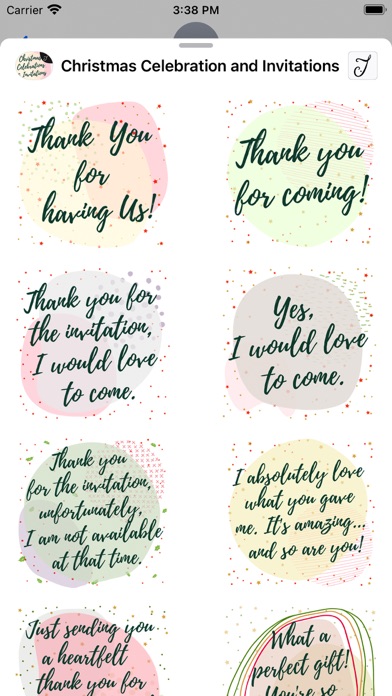 Carrier 3:38 PM
Christmas Celebrations & Invitations
Christmas Celebration and Invitations
Thank You
for
having Us!
Thank you
for coming!
Thank you for
the invitation,
I would love
to come.
Yes,
I would love
to come.
Thank you
for the invitation,
unfortunately,
I am not available
at that time.
I absolutely love
what you gave
me. It's amazing...
and so are you!
Just sending you
a heartfelt
thank you for
What a
perfect gift!
You're so